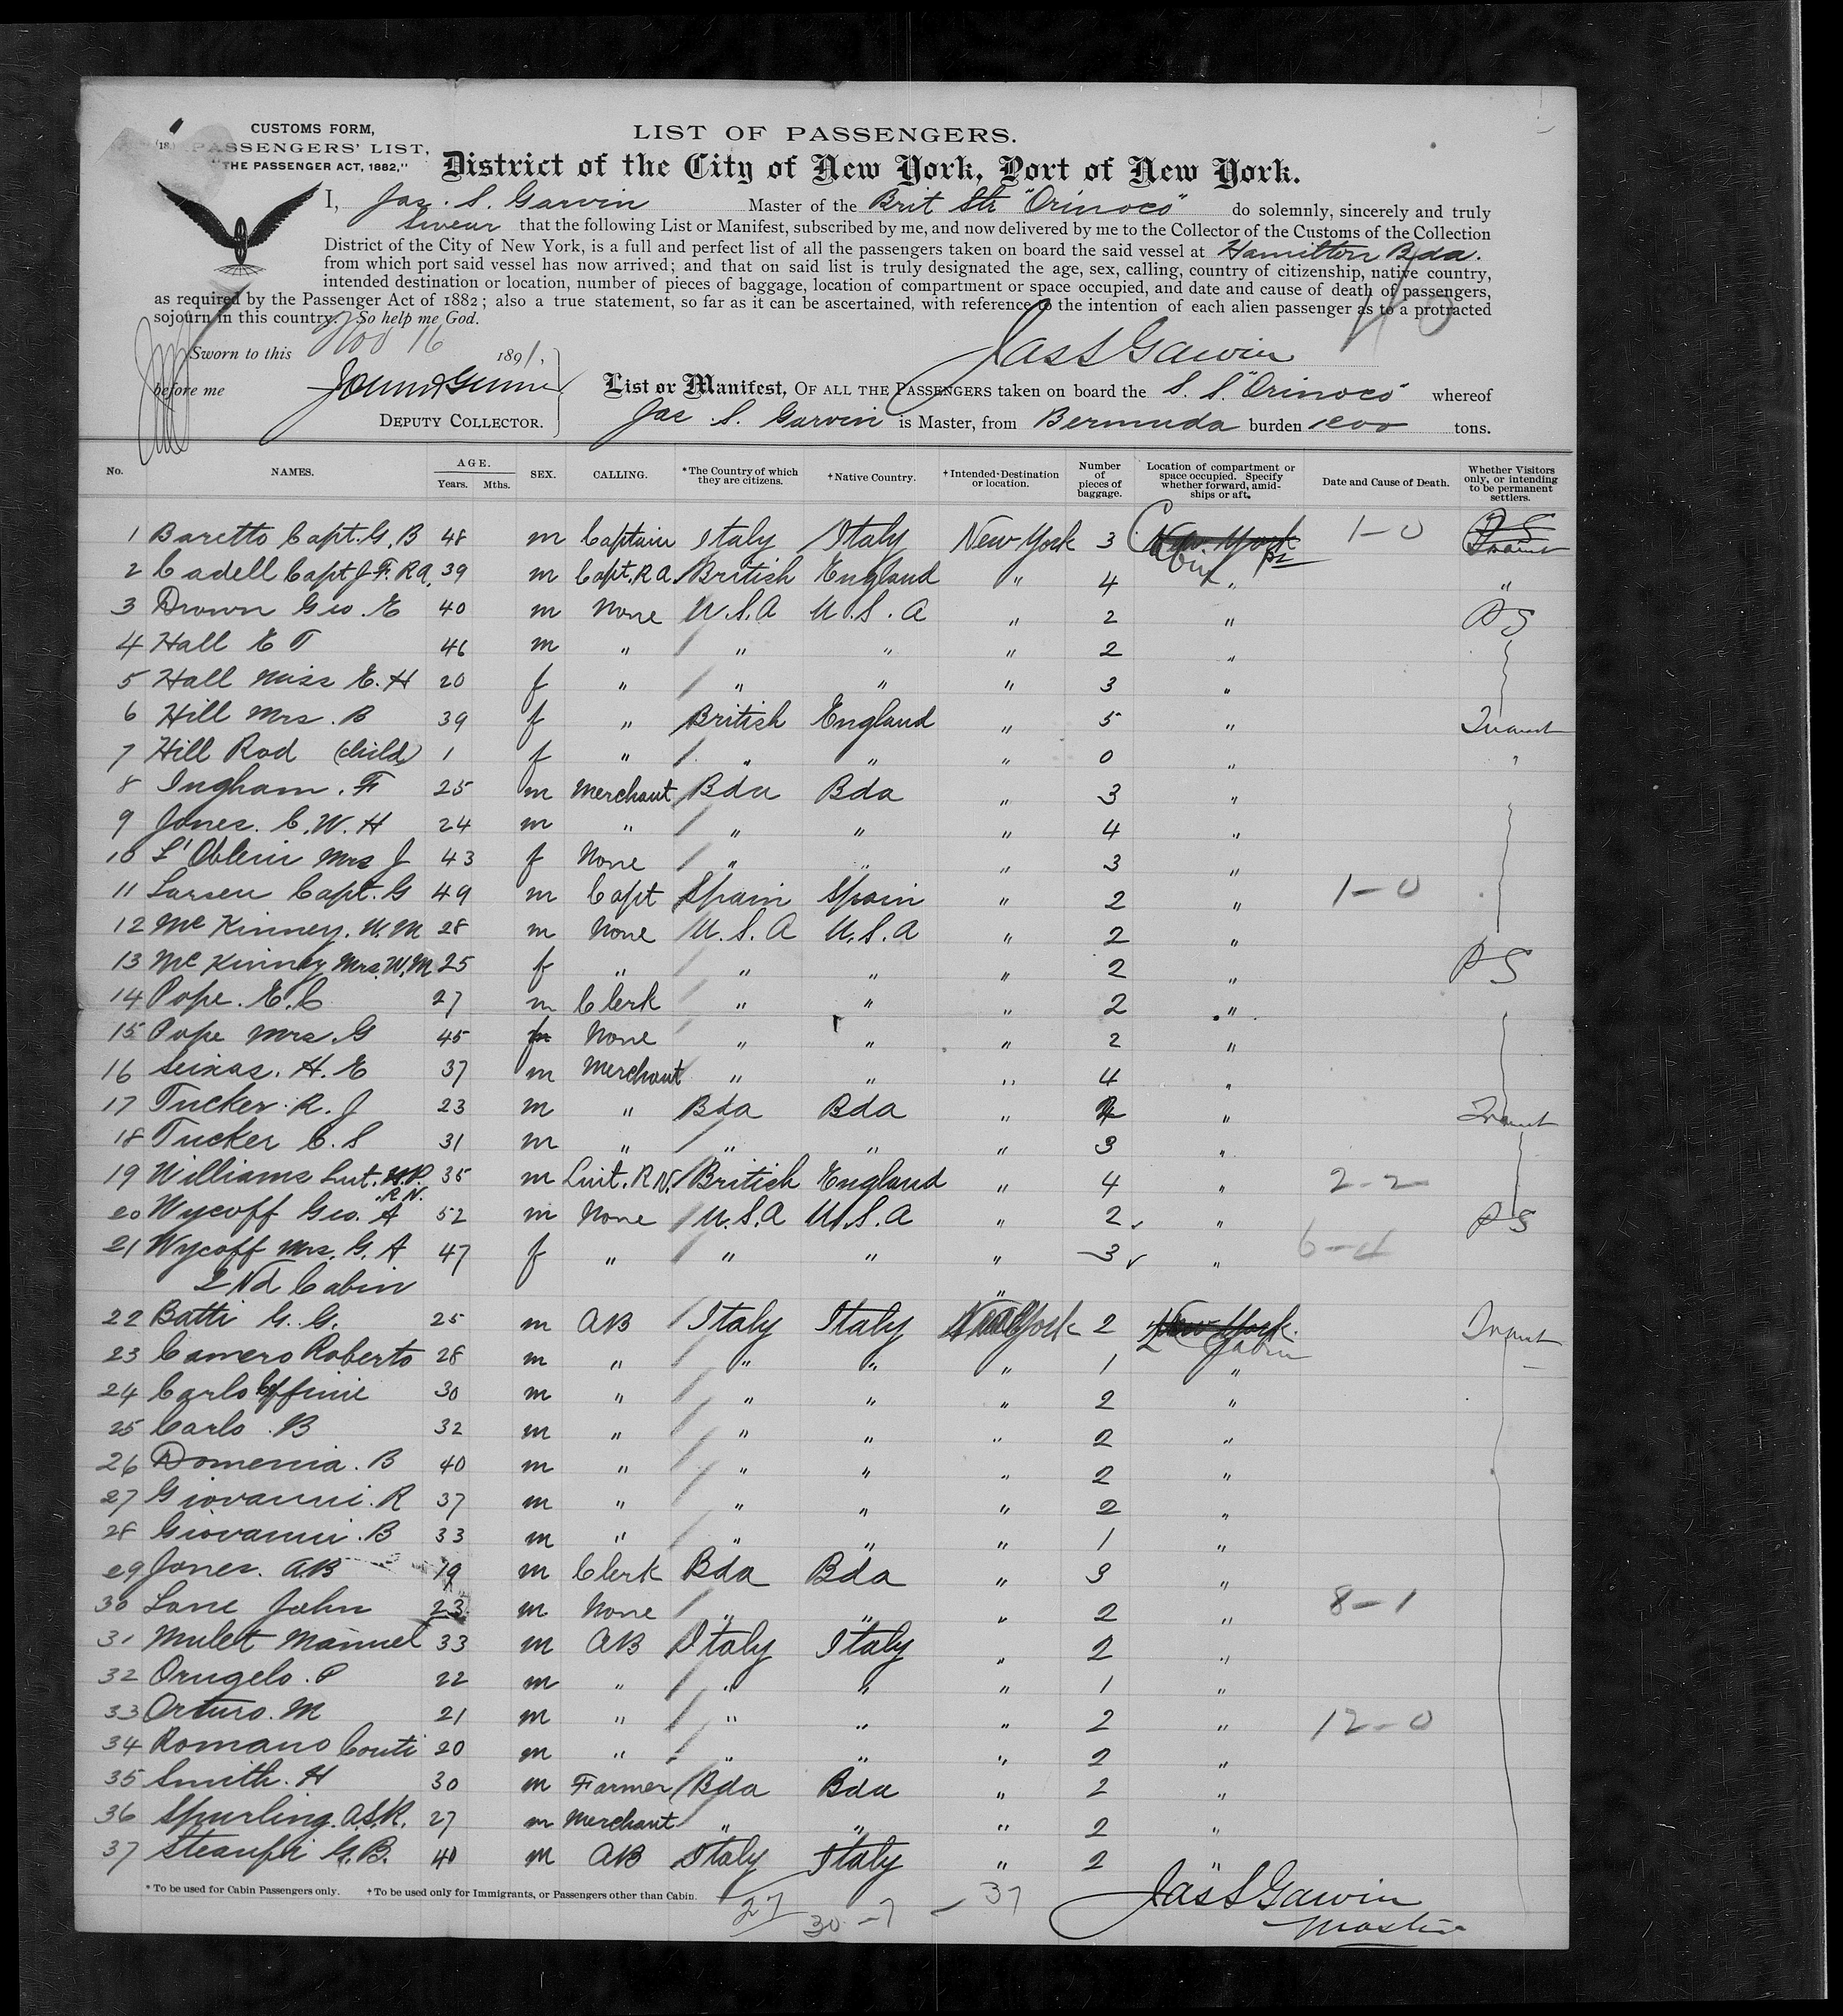 CUSTOMS FORM,
PASSENGERS' LIST,
"THE PASSENGER ACT, 1882,"
LIST OF PASSENGERS.
District of the City of New York, Port of New York.
I, Jas. S. Garvin Master of the Brit Str "Orinoco" do solemnly, sincerely and truly
swear that the following List or Manifest, subscribed by me, and now delivered by me to the Collector of the Customs of the Collection
District of the City of New York, is a full and perfect list of all the passengers taken on board the said vessel at Hamilton Bda.
from which port said vessel has now arrived; and that on said list is truly designated the age, sex, calling, country of citizenship, native country,
intended destination or location, number of pieces of baggage, location of compartment or space occupied, and date and cause of death of passengers,
as required by the Passenger Act of 1882; also a true statement, so far as it can be ascertained, with reference to the intention of each alien passenger as to a protracted
sojourn in this country. So help me God.
Sworn to this Nov 16 1891,
Jas S Garvin
before me
DEPUTY COLLECTOR.
List or Manifest, OF ALL THE PASSENGERS taken on board the S. S. "Orinoco" whereof
Jas. S. Garvin is Master, from Bermuda burden tons.
No. NAMES. AGE. Years. Mths. SEX. CALLING. *The Country of which they are citizens. †Native Country. †Intended Destination or location. Number of pieces of baggage. Location of compartment or space occupied. Specify whether forward, amidships or aft. Date and Cause of Death. Whether Visitors only, or intending to be permanent settlers.
1 Baretto Capt. G. B 48 m Captain Italy Italy New York 3 New York 1-0
2 Cadell Capt J. F. R A. 39 m Capt. R A British England " 4 " "
3 Drown Geo. E 40 m None U.S.A U.S.A " 2 " PS
4 Hall E T 46 m " " " " 2 "
5 Hall Miss E. H 20 f " " " " 3 "
6 Hill Mrs. B 39 f " British England " 5 "
7 Hill Rod (child) 1 f " " " " 0 " "
8 Ingham. F 25 m Merchant Bda Bda " 3 "
9 Jones. C. W. H 24 m " " " " 4 "
10 Mrs J 43 f None " " " 3 "
11 Larsen Capt. G 49 m Capt Spain Spain " 2 " 1-0
12 McKinney. W. M 28 m None U.S.A U.S.A " 2 "
13 McKinney Mrs. W. M 25 f " " " " 2 " PS
14 Pope. E. C 27 m Clerk " " " 2 "
15 Pope Mrs. G 45 f None " " " 2 "
16 Seixas. H. E 37 m Merchant " " " 4 "
17 Tucker. R. J 23 m " Bda Bda " "
18 Tucker C. S 31 m " " " " 3 "
19 Williams Lut. R.N. 35 m Luit. R N. British England " 4 " 2-2
20 Wycoff Geo. A 52 m None U.S.A U.S.A " 2 " PS
21 Wycoff Mrs. G. A 47 f " " " " 3 " 6-4
2nd Cabin "
22 Batti G. G. 25 m AB Italy Italy New York 2 New York 2 Cabin
23 Camero Roberto 28 m " " " " 1 "
24 Carlo 30 m " " " " 2 "
25 Carlo. B 32 m " " " " 2 "
26 Domenia. B 40 m " " " " 2 "
27 Giovanni. R 37 m " " " " 2 "
28 Giovanni. B 33 m " " " " 1 "
29 Jones. AB 19 m Clerk Bda Bda " 3 "
30 Lane John 23 m None " " " 2 " 8-1
31 Mulet Manuel 33 m AB Italy Italy " 2 "
32 Orugelo. P 22 m " " " " 1 "
33 Orturo. M 21 m " " " " 2 " 12-0
34 Romano Conti 20 m " " " " 2 "
35 Smith. H 30 m Farmer Bda Bda " 2 "
36 Spurling. A.S.R. 27 m Merchant " " " 2 "
37 G. B. 40 m AB Italy Italy " 2 "
* To be used for Cabin Passengers only. † To be used only for Immigrants, or Passengers other than Cabin.
27 30-7 - 37
Jas S Garvin
Master